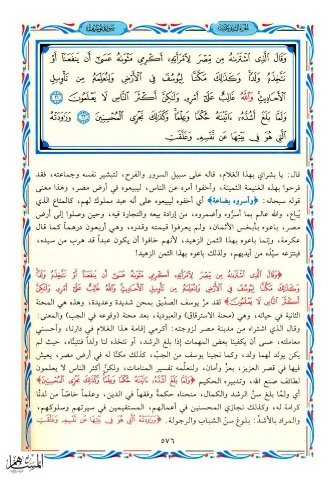 وَقَالَ الَّذِي اشْتَرَاهُ مِن مِّصْرَ لِامْرَأَتِهِ أَكْرِمِي مَثْوَاهُ عَسَىٰ أَن يَنفَعَنَا أَوْ
نَتَّخِذَهُ وَلَدًا وَكَذَٰلِكَ مَكَّنَّا لِيُوسُفَ فِي الْأَرْضِ وَلِنُعَلِّمَهُ مِن تَأْوِيلِ
الْأَحَادِيثِ وَاللَّهُ غَالِبٌ عَلَىٰ أَمْرِهِ وَلَٰكِنَّ أَكْثَرَ النَّاسِ لَا يَعْلَمُونَ
وَلَمَّا بَلَغَ أَشُدَّهُ آتَيْنَاهُ حُكْمًا وَعِلْمًا وَكَذَٰلِكَ نَجْزِي الْمُحْسِنِينَ وَرَاوَدَتْهُ
الَّتِي هُوَ فِي بَيْتِهَا عَن نَّفْسِهِ وَغَلَّقَتِ
قال: يا بشراي بهذا الغلام، قاله على سبيل السرور والفرح، لتبشير نفسه وجماعته، فقد
فرحوا بهذه الغنيمة الثمينة، وأخفوا أمره عن الناس، ليبيعوه في أرض مصر، وهذا معنى
قوله سبحانه: ﴿وأسروه بضاعة﴾ أي أخفوه ليبيعوه على أنه عبد مملوك لهم، كالمتاع الذي
يُباع، والله عالم بما أسرّوه وأضمروه، من إرادة بيعه والتجارة فيه، وحين وصلوا إلى أرض
مصر، باعوه بأبخس الأثمان، ولم يعرفوا قيمته وقدره، وهي أربعون درهماً كما قال
عكرمة، وإنما باعوه بهذا الثمن الزهيد، لأنهم خافوا أن يكون عبداً قد هرب من سيده،
فينتزعه سيّده من أيديهم، ولذلك باعوه بهذا الثمن الزهيد!
﴿وَقَالَ الَّذِي اشْتَرَاهُ مِن مِّصْرَ لِامْرَأَتِهِ أَكْرِمِي مَثْوَاهُ عَسَىٰ أَن يَنفَعَنَا أَوْ نَتَّخِذَهُ وَلَدًا
وَكَذَٰلِكَ مَكَّنَّا لِيُوسُفَ فِي الْأَرْضِ وَلِنُعَلِّمَهُ مِن تَأْوِيلِ الْأَحَادِيثِ وَاللَّهُ غَالِبٌ عَلَىٰ أَمْرِهِ وَلَٰكِنَّ
أَكْثَرَ النَّاسِ لَا يَعْلَمُونَ﴾ لقد مرّ يوسف الصدّيق بمحن شديدة وعديدة، وهذه هي المحنة
الثانية في حياته، وهي (محنة الاسترقاق) والعبودية، بعد محنة (وقوعه في الجب) والمعنى:
وقال الذي اشتراه من مدينة مصر لزوجته: أكرمي إقامة هذا الغلام في دارنا، وأحسني
معاملته، عسى أن يكفينا بعض المهمات إذا بلغ الرشد، أو نتخذه لنا ولداً فنتبنّاه، حيث لم
يكن يولد لهما ولد، وكما نجينا يوسف من الجبّ، كذلك مكنّا له في أرض مصر، يعيش
فيها في قصر العزيز، بعزّ وأمان، ولنعلّمه تفسير المنامات، ولكنّ أكثر الناس لا يعلمون
لطائف صنع الله، وتدبيره الحكيم ﴿وَلَمَّا بَلَغَ أَشُدَّهُ آتَيْنَاهُ حُكْمًا وَعِلْمًا وَكَذَٰلِكَ نَجْزِي الْمُحْسِنِينَ﴾
أي ولمّا بلغ سنّ الرشد والكمال، منحناه حكمةً وفقهاً في الدين، وعلماً خاصّاً من لدنّا
كرامة له، وكذلك نجازي المحسنين في أعمالهم، المستقيمين في سيرتهم وسلوكهم،
والمراد بالأشدّ: بلوغ سنّ الشباب والرجولة. ﴿وَرَاوَدَتْهُ الَّتِي هُوَ فِي بَيْتِهَا عَن نَّفْسِهِ وَغَلَّقَتِ
٥٧٦